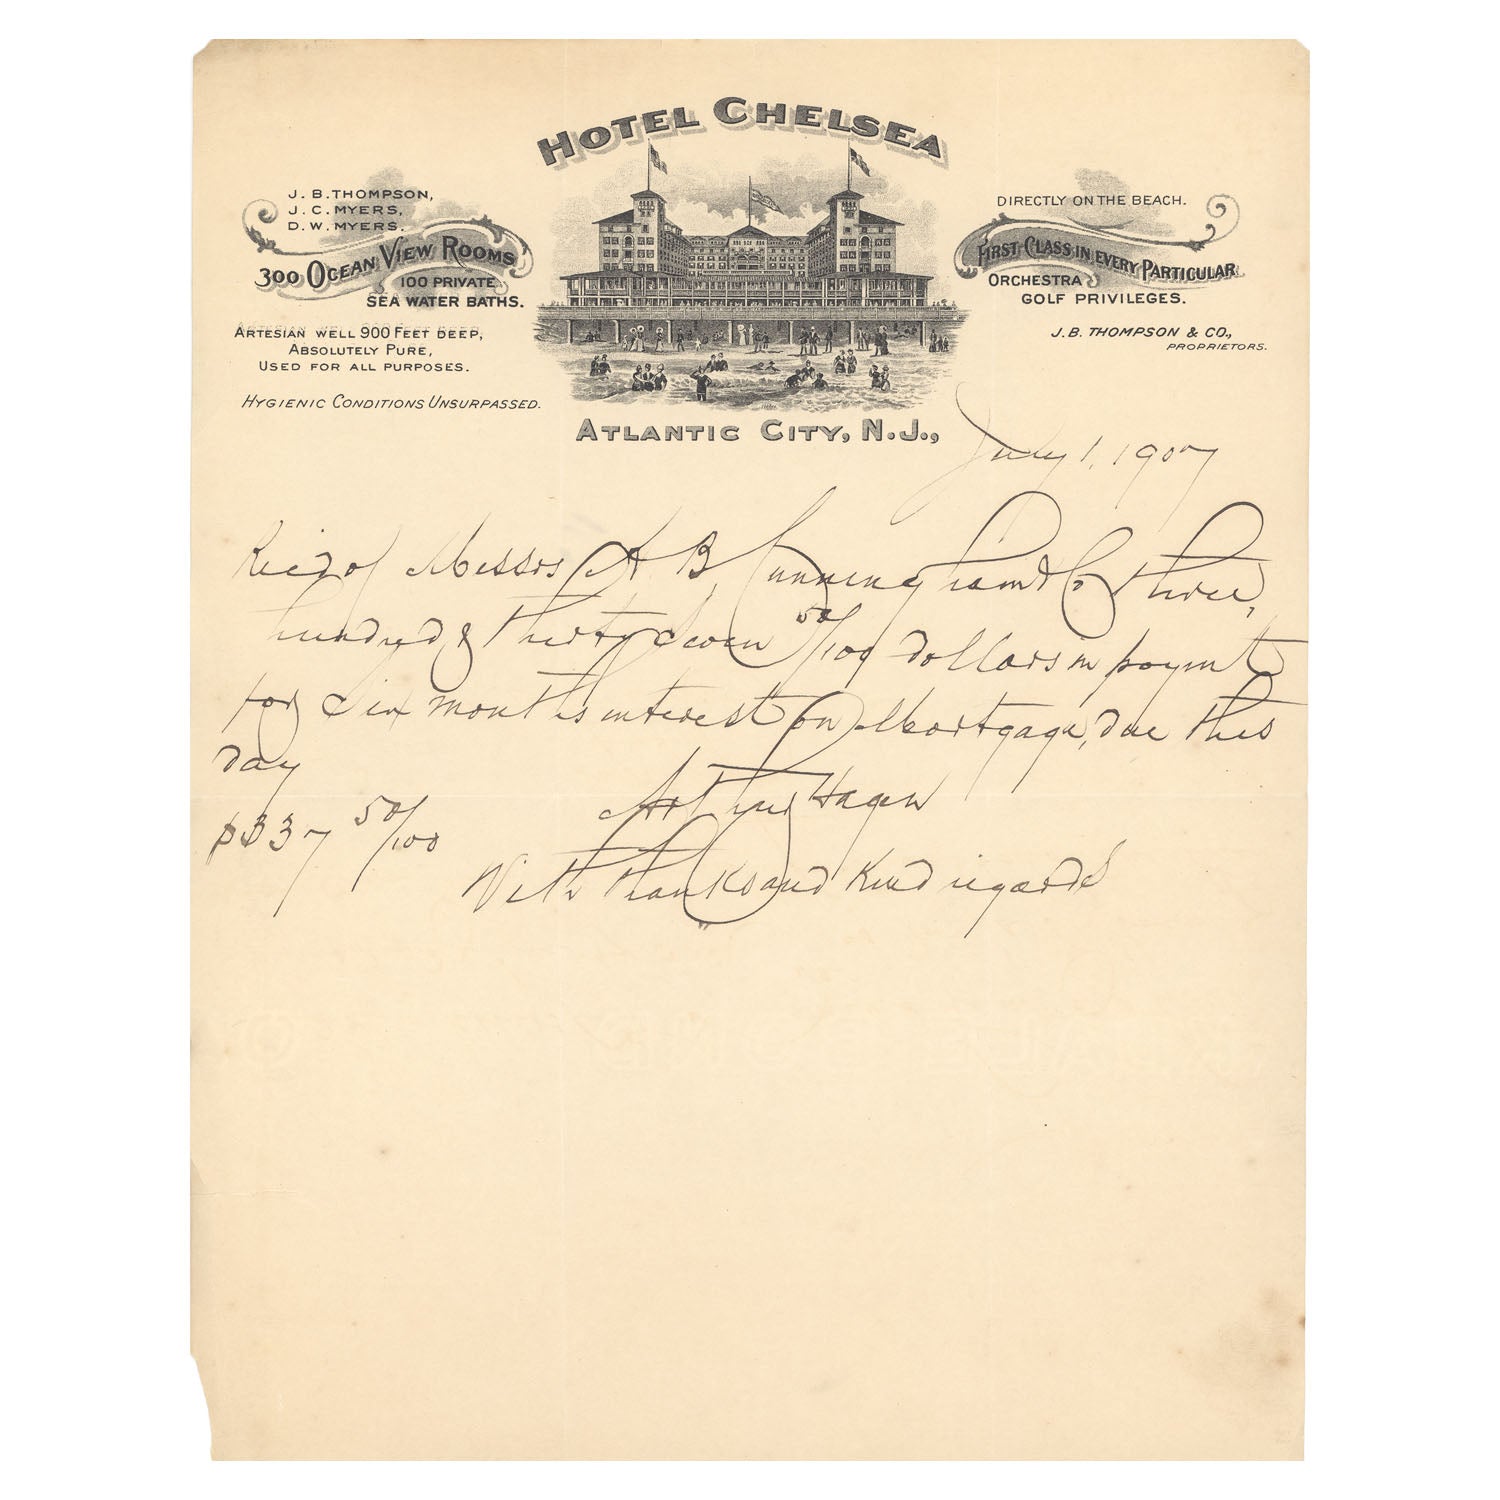 HOTEL CHELSEA
J. B. THOMPSON,
J. C. MYERS,
D. W. MYERS.
300 OCEAN VIEW ROOMS
100 PRIVATE
SEA WATER BATHS.
ARTESIAN WELL 900 FEET DEEP,
ABSOLUTELY PURE,
USED FOR ALL PURPOSES.
HYGIENIC CONDITIONS UNSURPASSED.
DIRECTLY ON THE BEACH.
FIRST CLASS IN EVERY PARTICULAR
ORCHESTRA
GOLF PRIVILEGES.
J. B. THOMPSON & CO.,
PROPRIETORS.
ATLANTIC CITY, N.J.,
July 1, 1907
Rec'd of Messrs A B Cunningham & Co three
hundred & thirty seven 50/100 dollars in paymt
for Six months interest on Mortgage, due this
day
Arthur Hagen
$337 50/100
With thanks and Kind regards